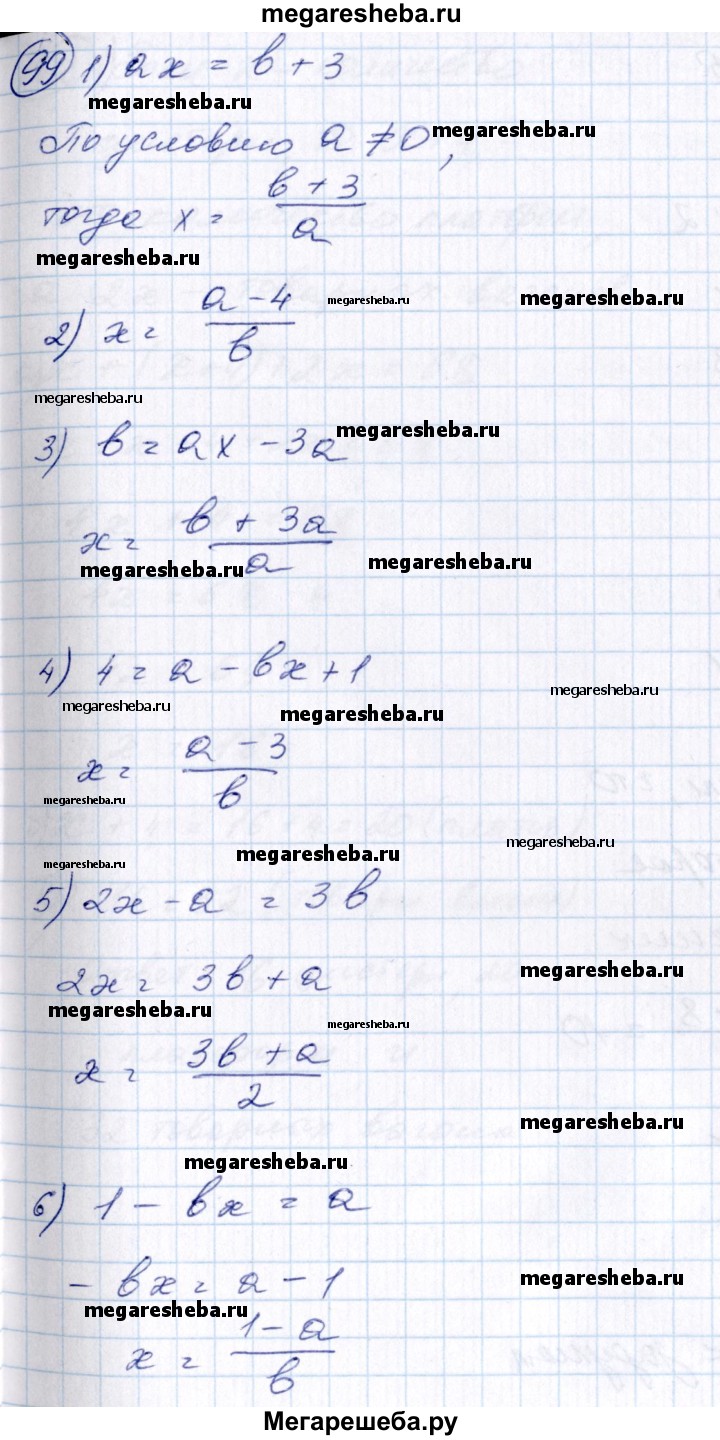 megaresheba.ru
99 1) ax = в + 3
megaresheba.ru
По условию a ≠ 0, megaresheba.ru
тогда x = (в + 3)/a
megaresheba.ru
2) x = (a - 4)/в megaresheba.ru megaresheba.ru
megaresheba.ru
3) в = ax - 3a megaresheba.ru
x = (в + 3a)/a
megaresheba.ru megaresheba.ru
4) 4 = a - вx + 1
megaresheba.ru megaresheba.ru megaresheba.ru
x = (a - 3)/в
megaresheba.ru
megaresheba.ru megaresheba.ru megaresheba.ru
5) 2x - a = 3в
2x = 3в + a megaresheba.ru
megaresheba.ru megaresheba.ru
x = (3в + a)/2
megaresheba.ru
megaresheba.ru
6) 1 - вx = a
- вx = a - 1 megaresheba.ru
megaresheba.ru
x = (1 - a)/в
Мегарешеба.ру